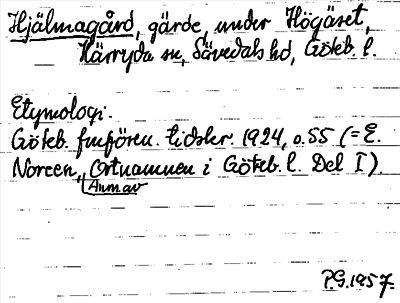 Hjälmagård, gärde, under Högäset,
Härryda sn, Sävedals hd, Göteb. l.
Etymologi:
Göteb. fmfören. tidskr. 1924, s. 55 (= E.
Noreen, Ortnamnen i Göteb. l. Del I).
Anm. av
P.G. 1957.